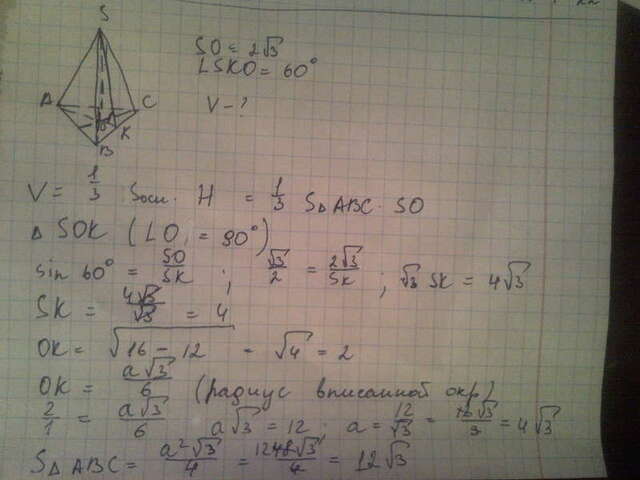 S
A
C
O
K
B
SO = 2√3
∠SKO = 60°
V - ?
V = 1/3 Sосн. H = 1/3 S△ABC · SO
△ SOK (∠O = 90°)
sin 60° = SO/SK ; √3/2 = 2√3/SK ; √3 SK = 4√3
SK = 4√3/√3 = 4
OK = √(16 - 12) = √4 = 2
OK = a√3/6 (радиус вписанной окр)
2/1 = a√3/6 a√3 = 12 ; a = 12/√3 = 12√3/3 = 4√3
S△ABC = a²√3/4 = 48√3/4 = 12√3